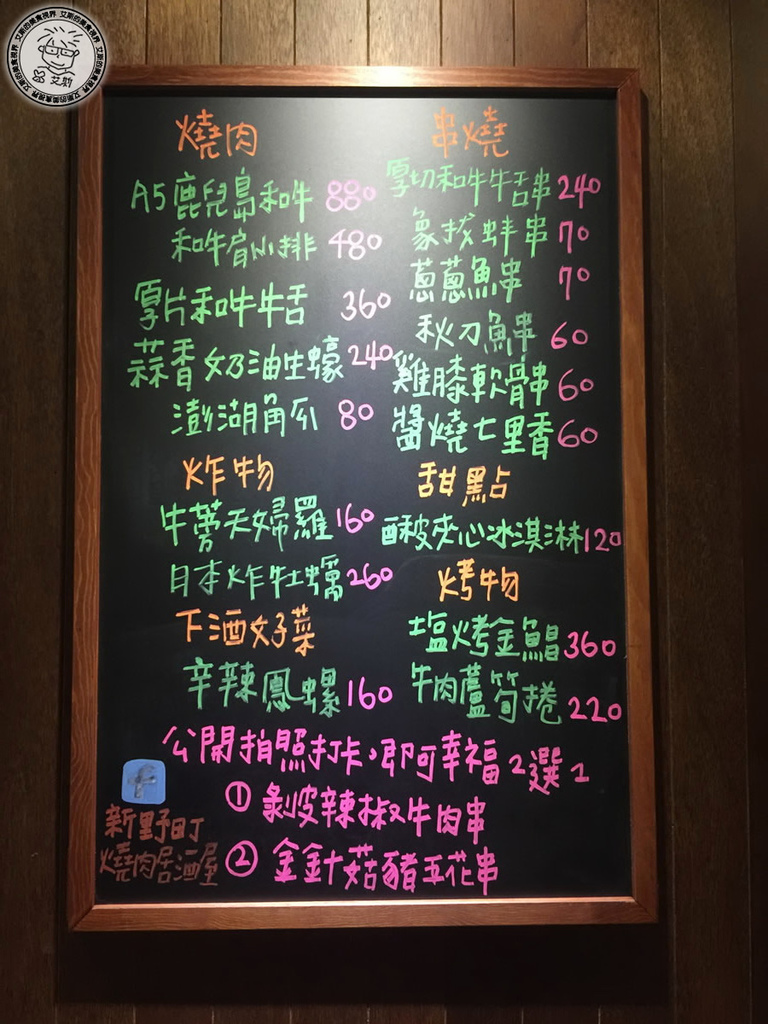 艾斯的美食視界
艾斯
燒肉
A5鹿兒島和牛 880
和牛肩小排 480
厚片和牛牛舌 360
蒜香奶油生蠔 240
澎湖角瓜 80
炸物
牛蒡天婦羅 160
日本炸牡蠣 260
下酒好菜
辛辣鳳螺 160
串燒
厚切和牛牛舌串 240
象拔蚌串 70
蔥蔥魚串 70
秋刀魚串 60
雞膝軟骨串 60
醬燒七里香 60
甜點
酥皮夾心冰淇淋 120
烤物
塩烤金鯧 360
牛肉蘆筍捲 220
公開拍照打卡,即可幸福2選1
① 剝皮辣椒牛肉串
② 金針菇豬五花串
f
新野町
燒肉居酒屋